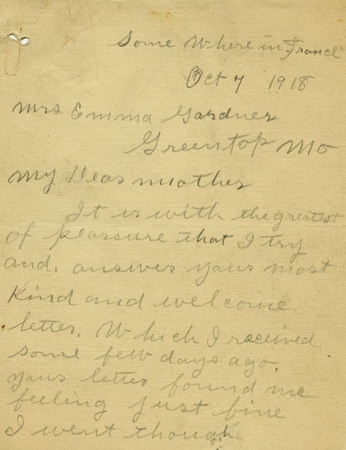 Some Where in France
Oct 7 1918
Mrs Emma Gardner
Greentop Mo
My Dear mother
It is with the greatest
of pleassure that I try
and, answer your most
Kind and welcome
letter. Which I received
some few days ago.
your letter found me
feeling just fine
I went though.